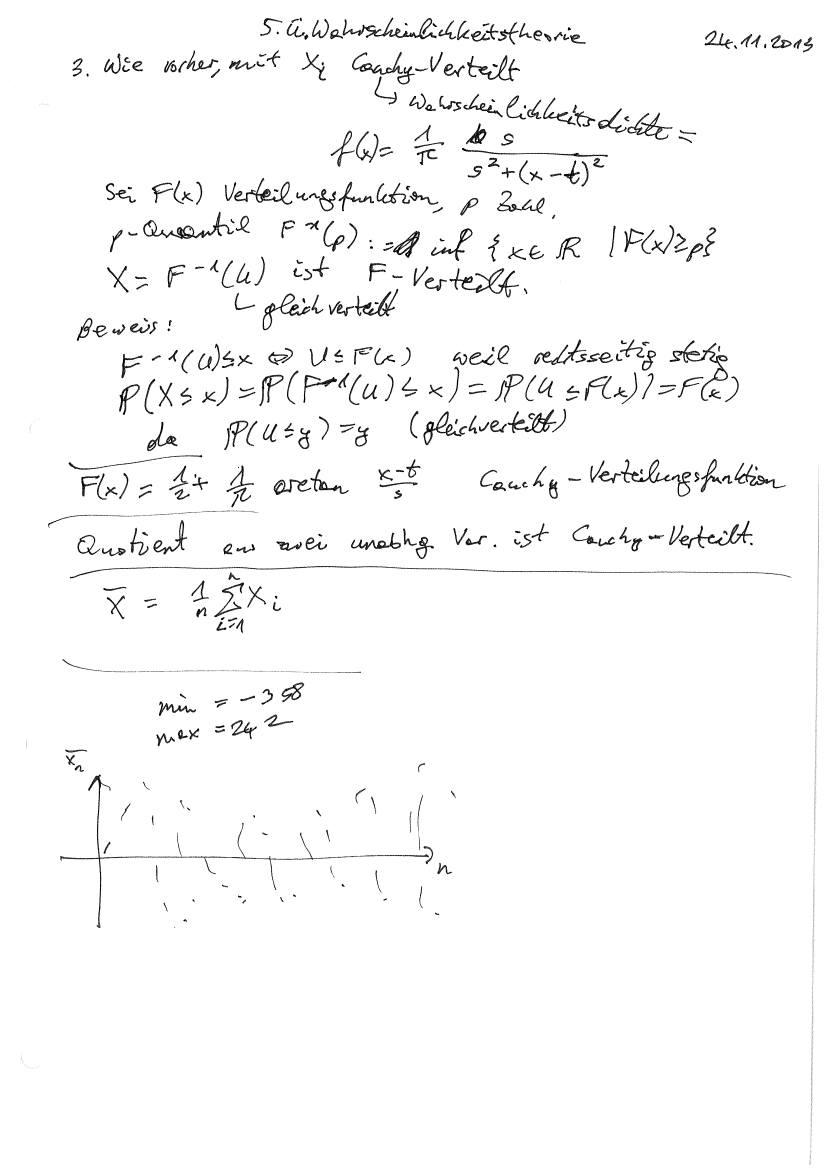 5. Ü. Wahrscheinlichkeitstheorie 24.11.2013
3. Wie vorher, mit Xi Cauchy-Verteilt
↳ Wahrscheinlichkeitsdichte =
f(x) = 1/π s/(s²+(x-t)²)
Sei F(x) Verteilungsfunktion, p Zahl,
p-Quantil F⁻¹(p) := inf {x ∈ ℝ | F(x) ≥ p}
X = F⁻¹(U) ist F-Verteilt.
↳ gleichverteilt
Beweis:
F⁻¹(U) ≤ x ⇔ U ≤ F(x) weil rechtsseitig stetig
ℙ(X ≤ x) = ℙ(F⁻¹(U) ≤ x) = ℙ(U ≤ F(x)) = F(x)
da ℙ(U ≤ y) = y (gleichverteilt)
F(x) = 1/2 + 1/π arctan (x-t)/s Cauchy-Verteilungsfunktion
Quotient aus zwei unabhg. Var. ist Cauchy-Verteilt.
X̅ = 1/n Σ_{i=1}^{n} Xi
min = -358
max = 242
x̅ₙ
n